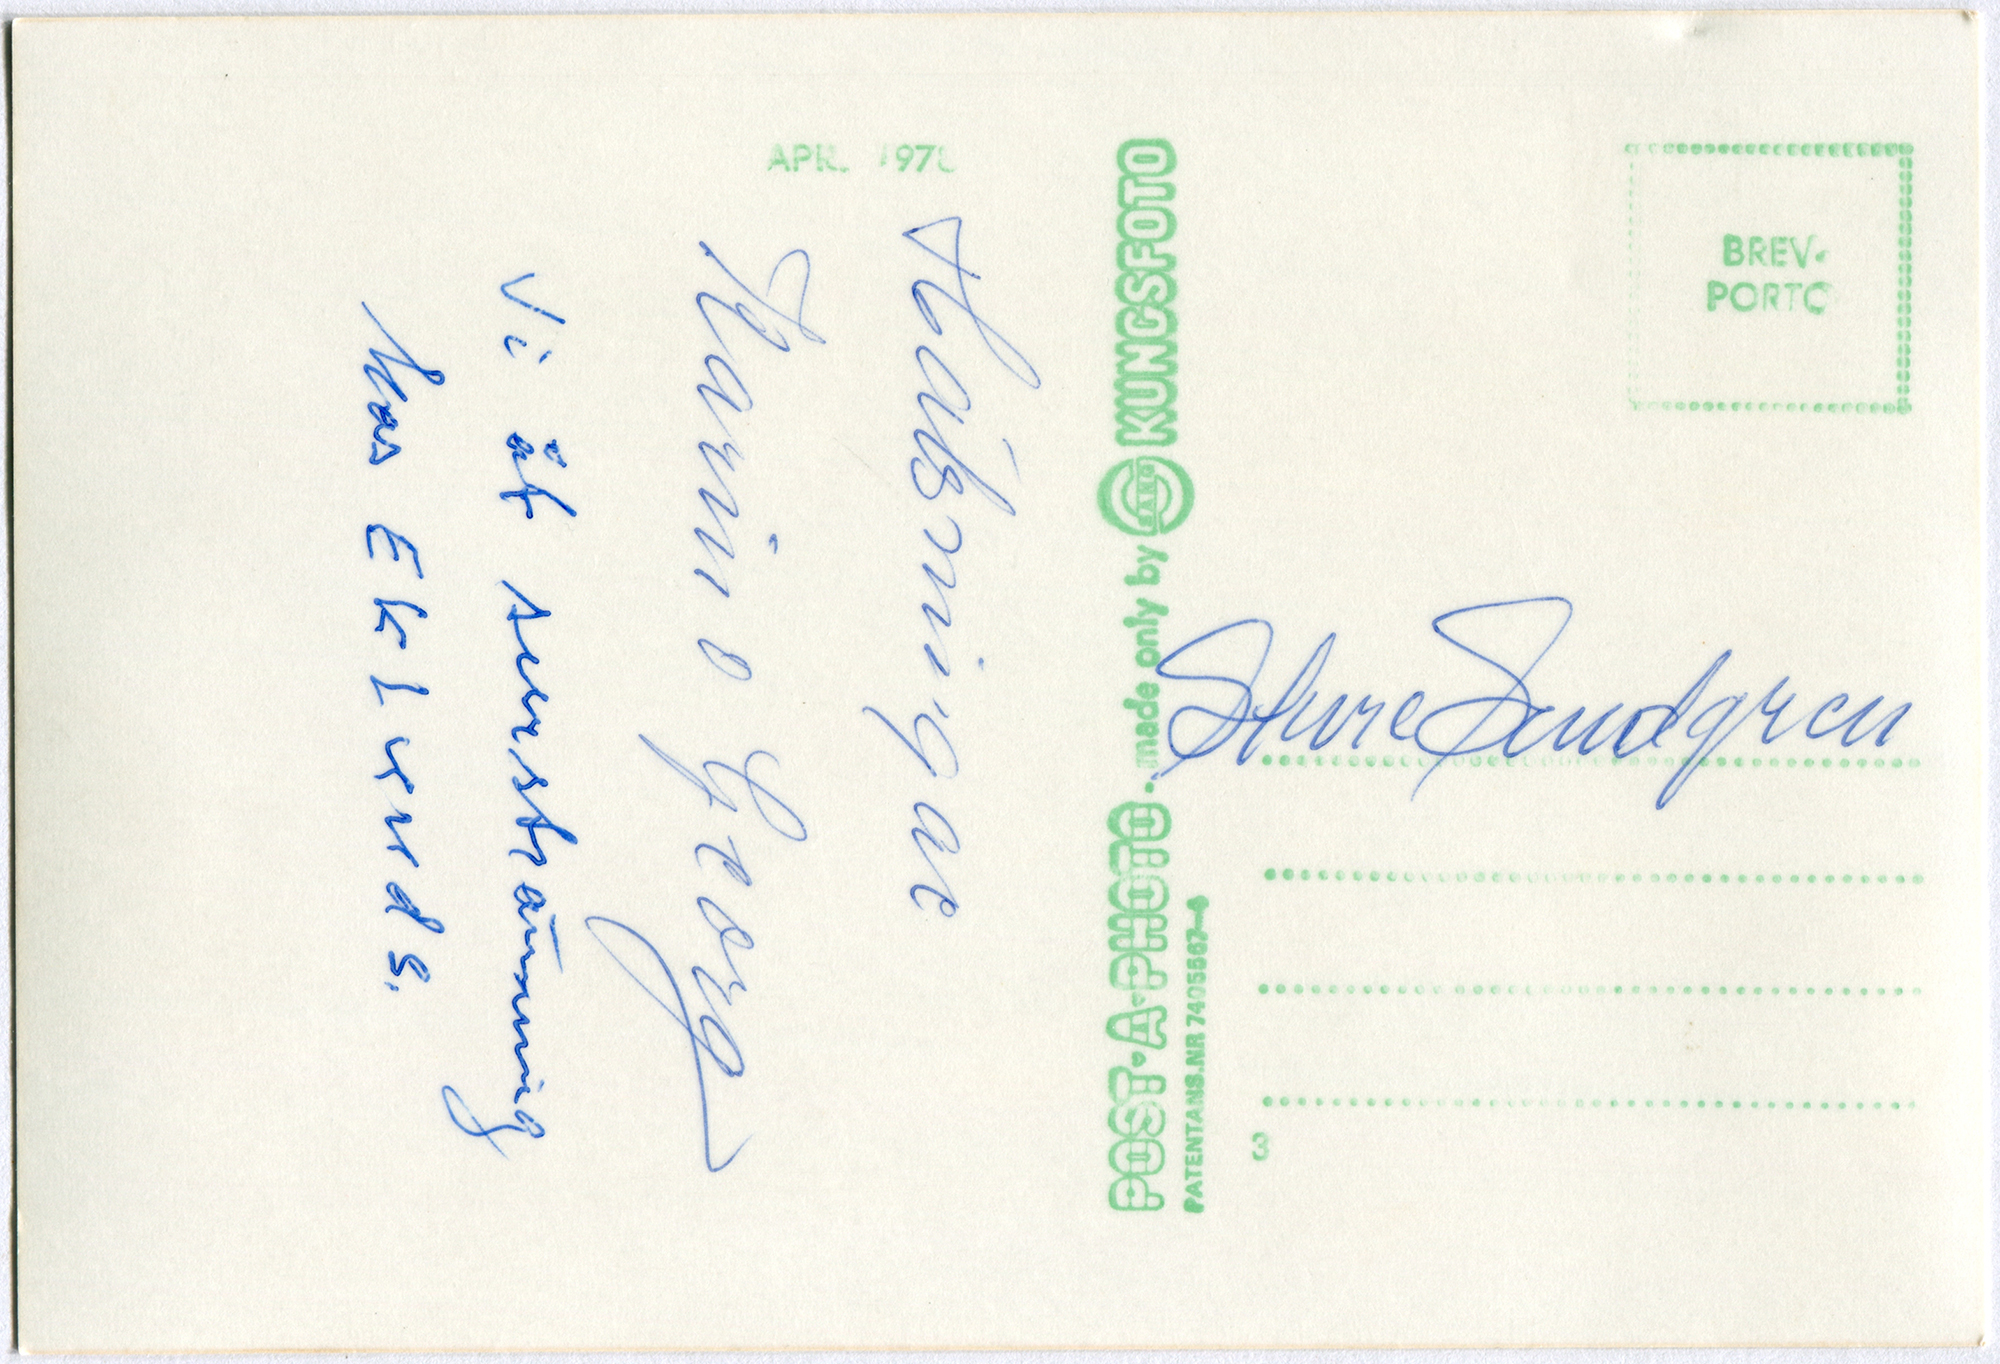 APR. 197
Hälsningar
Karin o Georg
Vi åt surströmming
hos Eklunds.
POST·A·PHOTO - made only by KUNGSFOTO
PATENTANS.NR 7405567-
BREV-
PORTO
Sture Sundgren
3